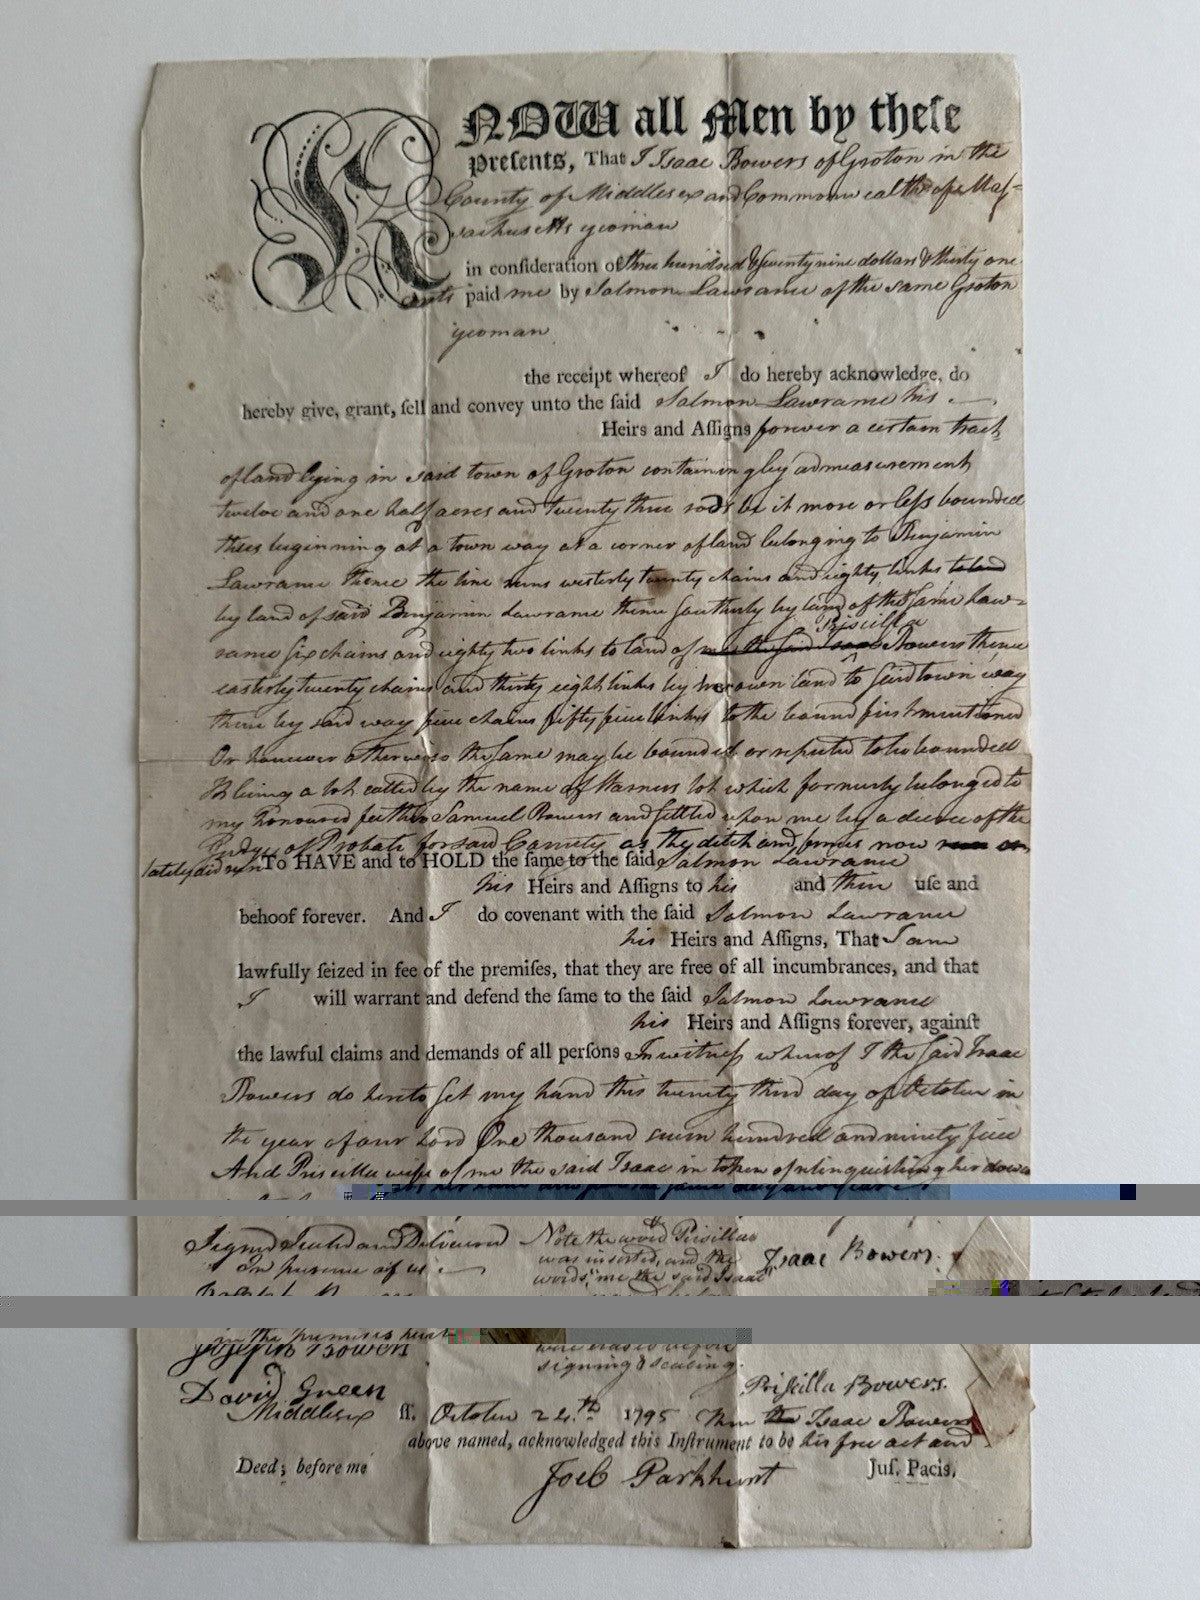 KNOW all Men by theſe
Preſents, That I Isaac Bowers of Groton in the
County of Middlesex and Commonwealth of Maſ=
sachusetts yeoman
in conſideration of three hundred & seventy nine dollars & thirty one
cents paid me by Salmon Lawrance of the same Groton
yeoman
the receipt whereof I do hereby acknowledge, do
hereby give, grant, ſell and convey unto the ſaid Salmon Lawrance his
Heirs and Aſſigns forever a certain tract
of land lying in said town of Groton containing by admeasurement
twelve and one half acres and twenty three rods be it more or leſs bounded
thus beginning at a town way at a corner of land belonging to Benjamin
Lawrance thence the line runs westerly twenty chains and eighty links to land
by land of said Benjamin Lawrance thence southerly by land of the same Law=
Priscilla
rance six chains and eighty two links to land of me the said Isaac Bowers thence
easterly twenty chains and thirty eight links by own land to said town way
thence by said way five chains fifty five links to the bound first mentioned
Or however otherwise the same may be bounded or reputed to be bounded
It being a lot called by the name of lot which formerly belonged to
my honoured father Samuel Bowers and settled upon me by a decree of the
Judge of Probate for said County as the ditch and fences now run or
lately did run To HAVE and to HOLD the ſame to the ſaid Salmon Lawrance
his Heirs and Aſſigns to his and their uſe and
behoof forever. And I do covenant with the ſaid Salmon Lawrance
his Heirs and Aſſigns, That I am
lawfully ſeized in fee of the premiſes, that they are free of all incumbrances, and that
I will warrant and defend the ſame to the ſaid Salmon Lawrance
his Heirs and Aſſigns forever, againſt
the lawful claims and demands of all perſons In witneſs whereof I the said Isaac
Bowers do hereto set my hand this twenty third day of October in
the year of our Lord One thousand seven hundred and ninety five
And Priscilla wife of me the said Isaac in token of relinquishing her dower
Signed Sealed and Delivered
in presence of us
Note the word Prisilla
was inserted, and the
words "me the said Isaac"
Isaac Bowers.
in the premises
Joseph Bowers
were erased before
signing & sealing.
David Green
Priſcilla Bowers.
Middlesex ſſ. October 24.th 1795 Then the Isaac Bowers
above named, acknowledged this Inſtrument to be his free act and
Deed; before me Joel Parkhurst Juſ. Pacis.